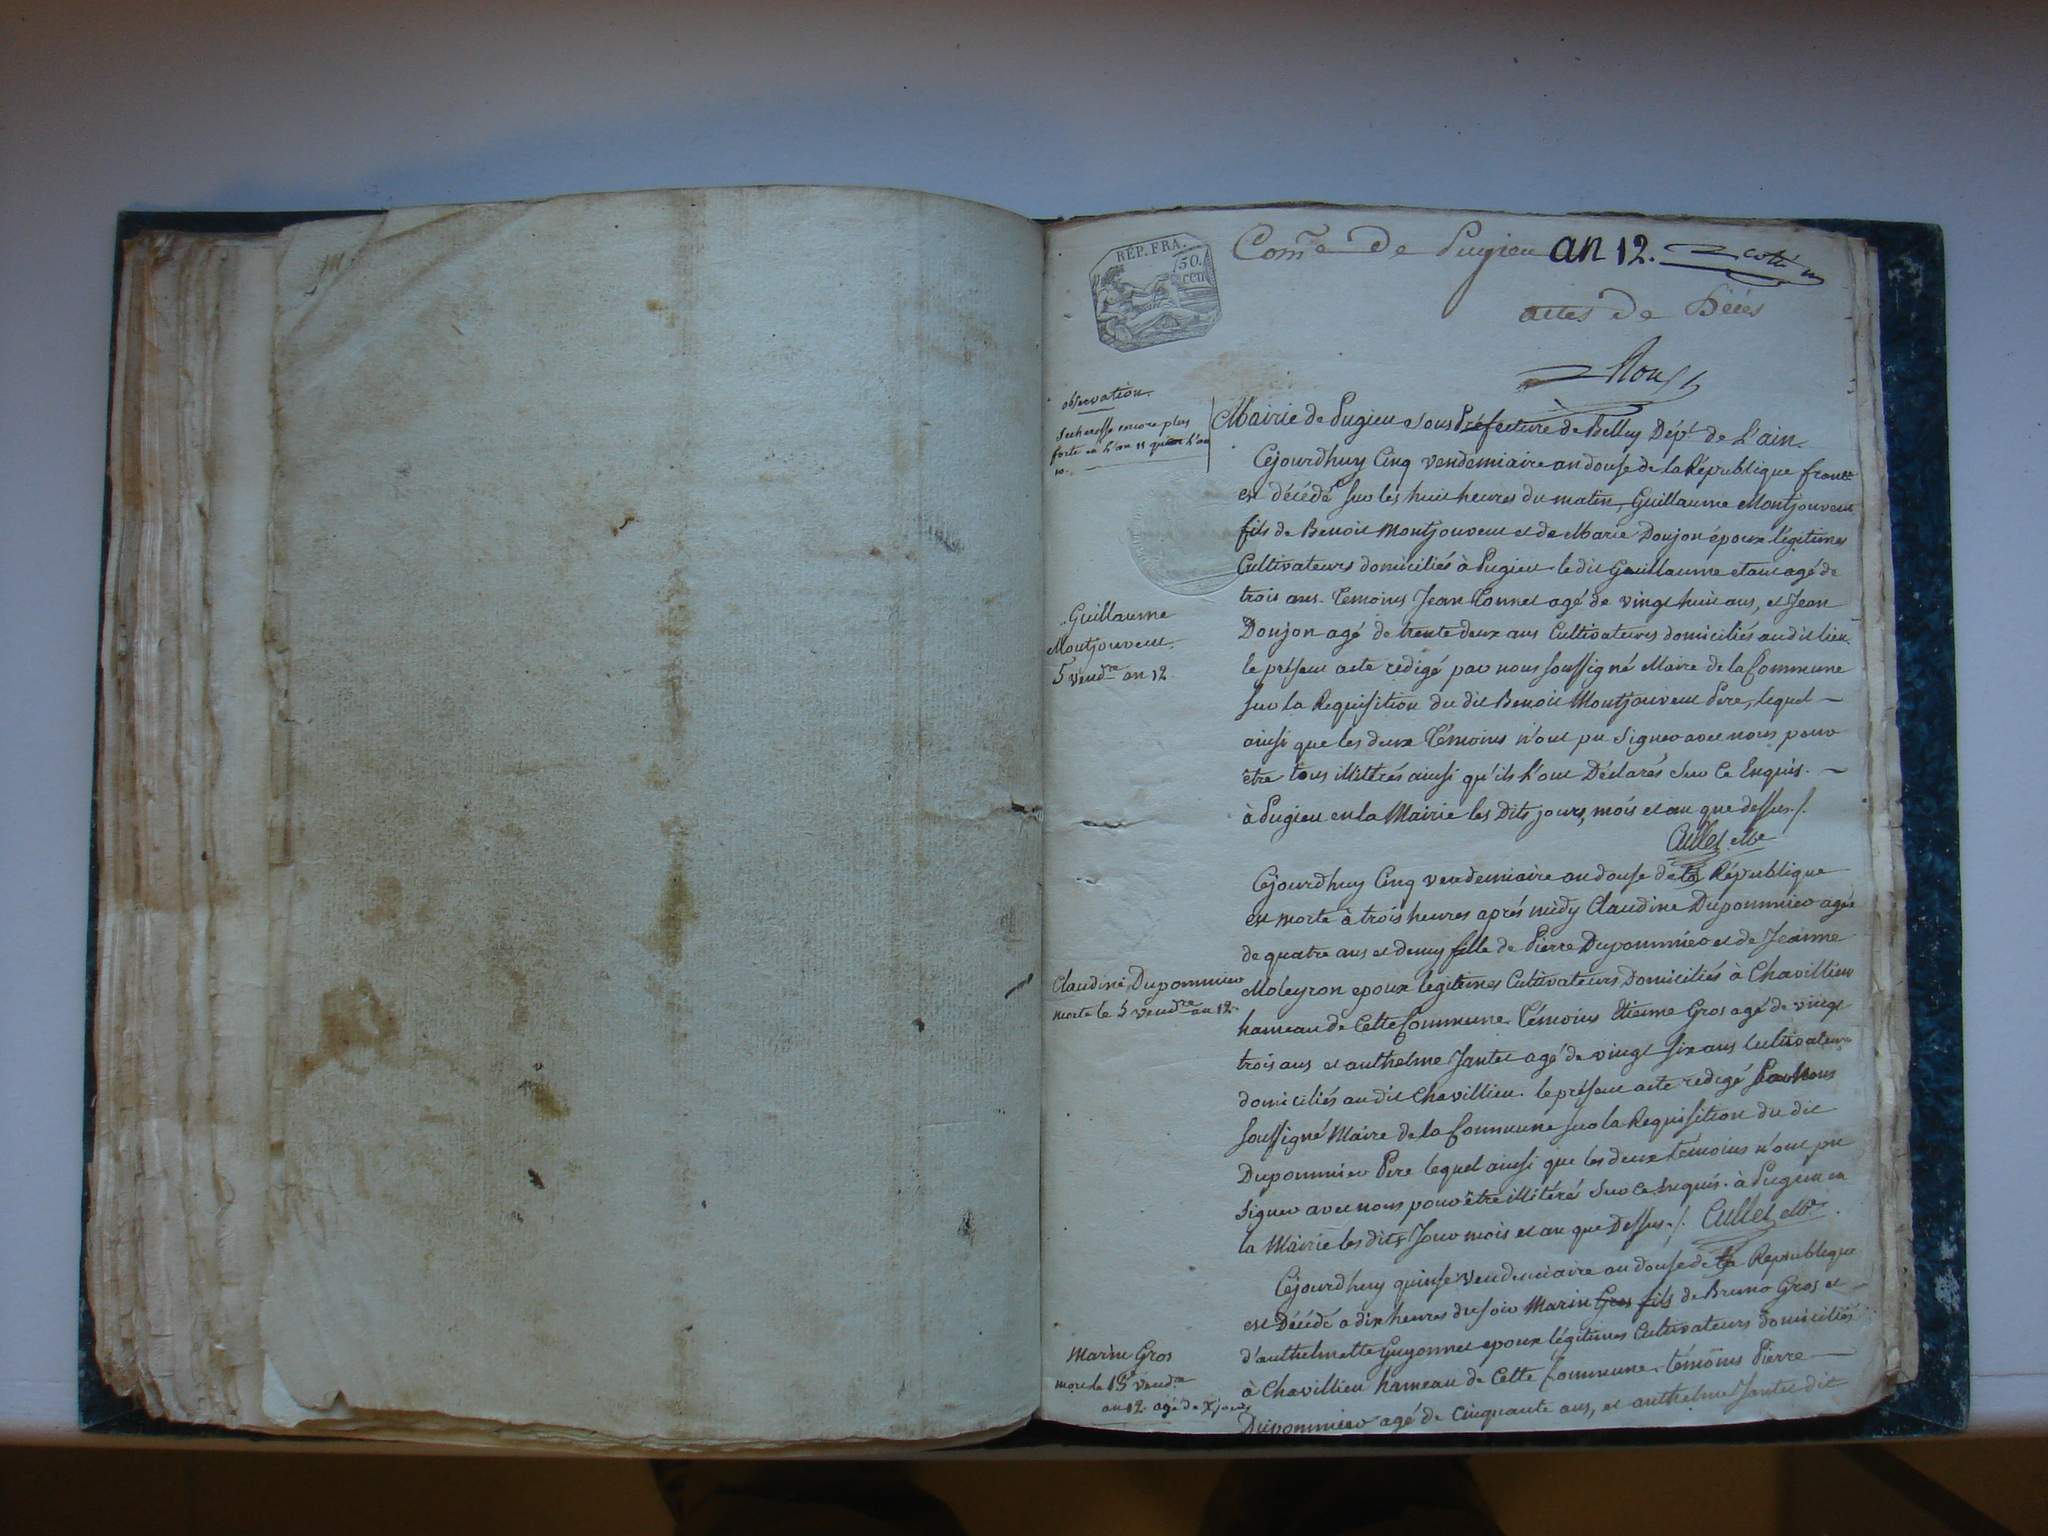 RÉP. FRA.
50.
cen
Com.e De Pugieu an 12.
actes de Décès
observation.
secheresse encore plus
forte en l'an 11 qu'en l'an
10.
Mairie de Pugieu sous Préfecture de Belley Dép.t de L'ain
Cejourdhuy Cinq vendemiaire an douse de la République
est décédé sur les huit heures du matin, Guillaume Montjouvent
fils de Benoit Montjouvent et de Marie Doujon époux légitimes
Cultivateurs domiciliés à Pugieu le dit Guillaume etant agé de
trois ans. Temoins Jean Connet agé de vingt huit ans, et Jean
Doujon agé de trente deux ans Cultivateurs domiciliés au dit lieu
le présent acte redigé par nous soussigné Maire de la Commune
sur la Requisition du dit Benoit Montjouvent Pere, lequel
ainsi que les deux Témoins n'ont pu signer avec nous pour
être tous illitérés ainsi qu'ils l'ont Déclarés sur ce Enquis.
à Pugieu en la Mairie les Dits jours, mois et an que dessus./.
Cullet M.e
Guillaume
Montjouvent
5 vend.re an 12
Cejourdhuy Cinq vendemiaire an douse de la République
est morte à trois heures aprés midy Claudine Dupommier agée
de quatre ans et demy fille de Pierre Dupommier et de Jeanne
Moleyron epoux legitimes Cultivateurs Domiciliés à Chavillieu
hameau de Cette Commune. Témoins Etienne Gros agé de vingt
trois ans et anthelme Jantet agé de vingt six ans Cultivateurs
domiciliés au dit Chavillieu. le présent acte redigé Par Nous
soussigné Maire de la Commune sur la Requisition du dit
Dupommier Pere lequel ainsi que les deux temoins n'ont pu
signer avec nous pour être illitérés sur ce enquis. à Pugieu en
la Mairie les dits Jour mois et an que Dessus./. Cullet M.e
Claudine Dupommier
morte le 5 vend.re an 12.
Cejourdhuy quinse vendemiaire an douse de la Republique
est Décédé a dix heures du soir Marin Gros fils de Bruno Gros et
d'anthelmette Guyonnet epoux légitimes Cultivateurs domiciliés
à Chavillieu hameau de Cette Commune. témoins Pierre
Dupommier agé de Cinquante ans, et anthelme Jantet dit
Marin Gros
mort le 15 vend.re
an 12. agé de X jours